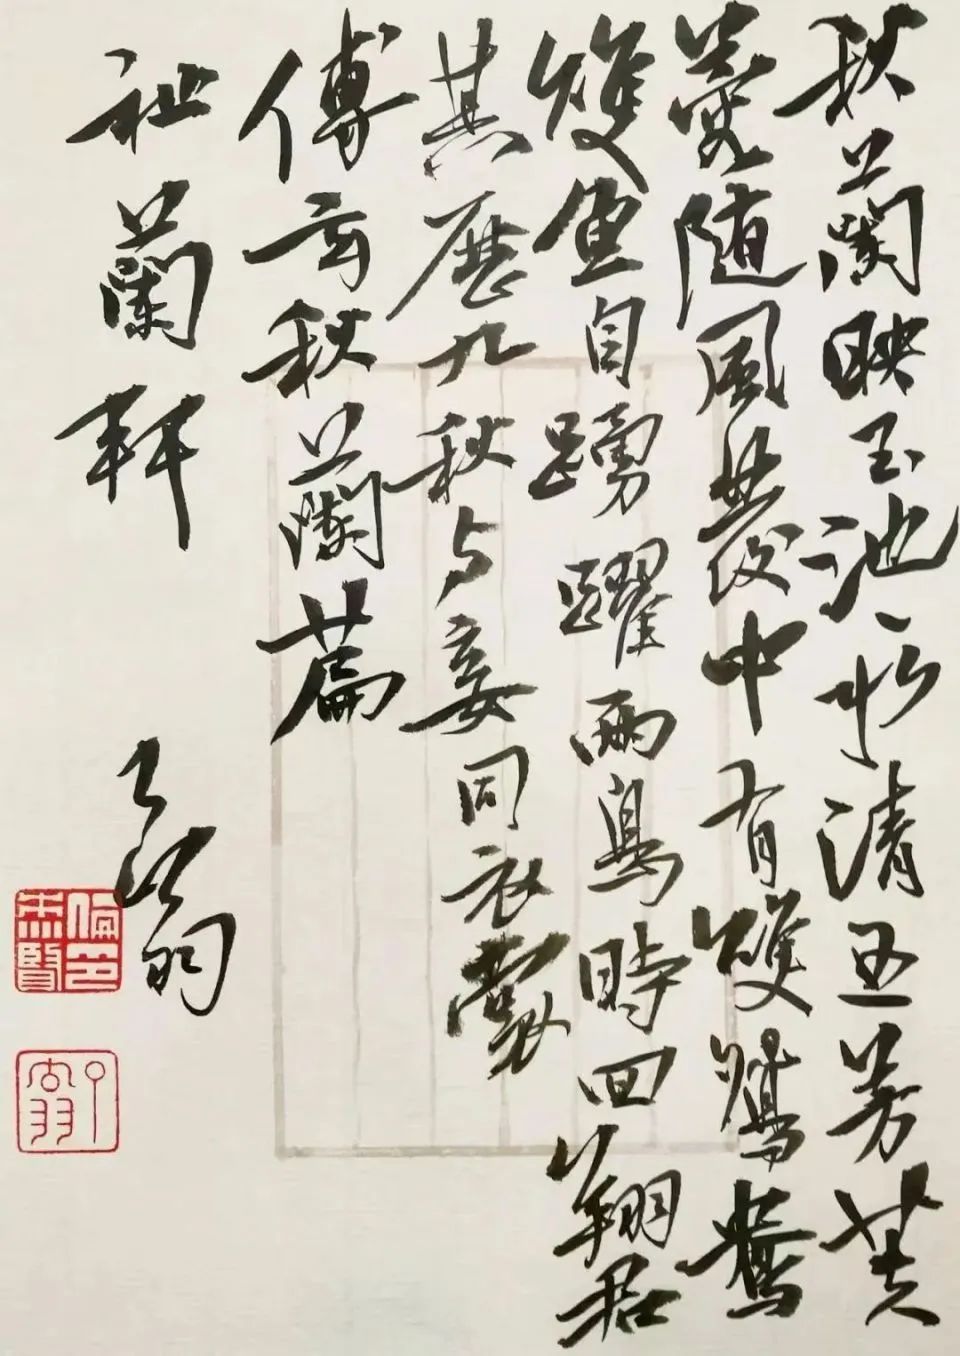 秋蘭映玉池々水清且芳芙
蓉随風發中有雙鴛鴦
雙魚自踴躍兩鳥時回翔君
其歷九秋与妾同衣裳
傅玄秋蘭篇
祉蘭軒 了翁
了翁